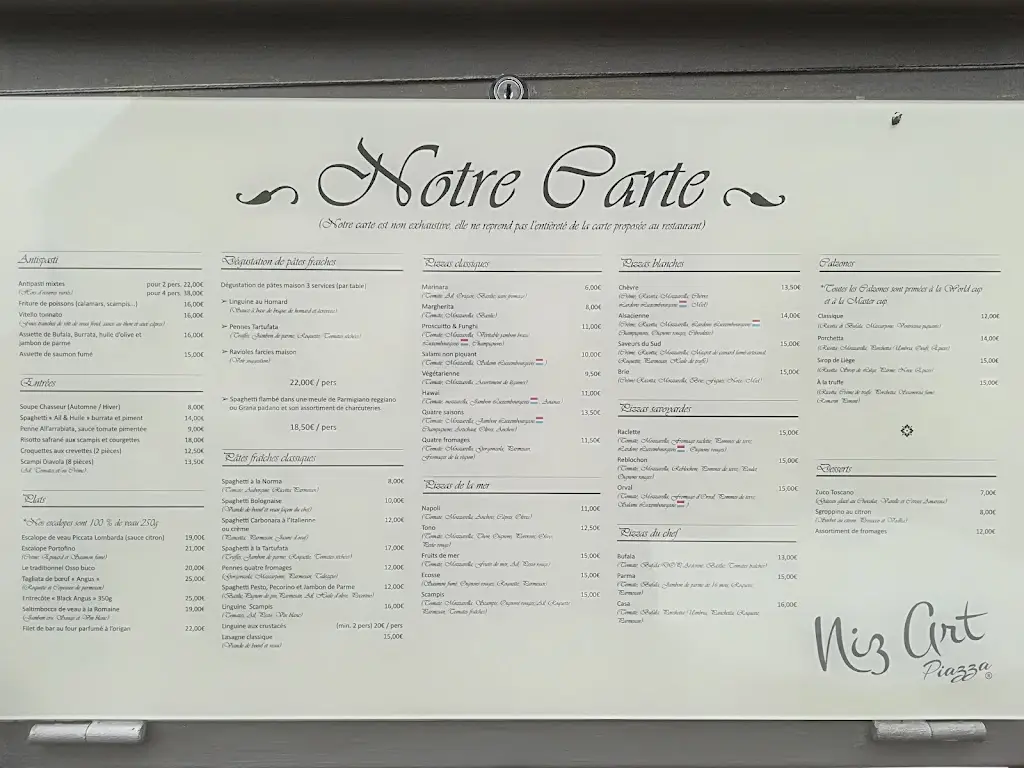 Notre Carte
(Notre carte est non exhaustive, elle ne reprend pas l'entièreté de la carte proposée au restaurant)
Antipasti
Antipasti mixtes pour 2 pers. 22,00€
(Hors d'œuvres variés) pour 4 pers. 38,00€
Friture de poissons (calamars, scampis...) 16,00€
Vitello tonnato 16,00€
Assiette de Bufala, Burrata, huile d'olive et 16,00€
jambon de parme
Assiette de saumon fumé 15,00€
Entrées
Soupe Chasseur (Automne / Hiver) 8,00€
Spaghetti « Ail & Huile » burrata et piment 14,00€
Penne All'arrabiata, sauce tomate pimentée 9,00€
Risotto safrané aux scampis et courgettes 18,00€
Croquettes aux crevettes (2 pièces) 12,50€
Scampi Diavola (8 pièces) 13,50€
(Ail, Tomates et/ou Crème)
Plats
*Nos escalopes sont 100 % de veau 250g
Escalope de veau Piccata Lombarda (sauce citron) 19,00€
Escalope Portofino 21,00€
(Crème, Epinard et Saumon fumé)
Le traditionnel Osso buco 20,00€
Tagliata de bœuf « Angus » 25,00€
(Roquette et Copeaux de parmesan)
Entrecôte « Black Angus » 350g 25,00€
Saltimbocca de veau à la Romaine 19,00€
(Jambon cru, Sauge et Vin blanc)
Filet de bar au four parfumé à l'origan 22,00€
Dégustation de pâtes fraîches
Dégustation de pâtes maison 3 services (par table)
➢ Linguine au Homard
(Sauce à base de bisque de homard et terroux)
➢ Pennes Tartufata
(Truffe, Jambon de parme, Roquette, Tomates cerises)
➢ Ravioles farcies maison
(Voir suggestion)
22,00€ / pers
➢ Spaghetti flambé dans une meule de Parmigiano reggiano
ou Grana padano et son assortiment de charcuteries.
18,50€ / pers
Pâtes fraîches classiques
Spaghetti à la Norma 8,00€
(Tomate, Aubergine, Ricotta, Parmesan)
Spaghetti Bolognaise 10,00€
(Viande de bœuf et veau façon du chef)
Spaghetti Carbonara à l'italienne 12,00€
ou crème
(Pancetta, Parmesan, Jaune d'œuf)
Spaghetti à la Tartufata 17,00€
(Truffe, Jambon de parme, Roquette, Tomates cerises)
Pennes quatre fromages 12,00€
(Gorgonzola, Mascarpone, Parmesan, Taleggio)
Spaghetti Pesto, Pecorino et Jambon de Parme 12,00€
(Basilic, Pignon de pin, Parmesan, Ail, Huile d'olive, Pecorino)
Linguine Scampis 16,00€
(Tomates, Ail, Persil, Vin blanc)
Linguine aux crustacés (min. 2 pers) 20€ / pers
Lasagne classique 15,00€
(Viande de bœuf et veau)
Pizzas classiques
Marinara 6,00€
(Tomate, Ail, Origan, Basilic, sans fromage)
Margherita 8,00€
(Tomate, Mozzarella, Basilic)
Proscuitto & Funghi 11,00€
(Tomate, Mozzarella, Véritable jambon braisé
Luxembourgeois, Champignons)
Salami non piquant 10,00€
(Tomate, Mozzarella, Salami Luxembourgeois)
Végétarienne 9,50€
(Tomate, Mozzarella, Assortiment de légumes)
Hawaï 11,00€
(Tomate, mozzarella, Jambon Luxembourgeois, Ananas)
Quatre saisons 13,50€
(Tomate, Mozzarella, Jambon Luxembourgeois
Champignons, Artichaut, Olives, Anchois)
Quatre fromages 11,50€
(Tomate, Mozzarella, Gorgonzola, Parmesan,
Fromages de la région)
Pizzas de la mer
Napoli 11,00€
(Tomate, Mozzarella, Anchois, Câpres, Olives)
Tono 12,50€
(Tomate, Mozzarella, Thon, Oignons, Poivrons, Olives,
Fruits de mer 15,00€
(Tomate, Mozzarella, Fruits de mer, Ail, Persil rouge)
Ecosse 15,00€
(Saumon fumé, Oignons rouges, Roquette, Parmesan)
Scampis 15,00€
(Tomate, Mozzarella, Scampis, Oignons rouges, Ail, Roquette,
Parmesan, Tomates fraîches)
Pizzas blanches
Chèvre 13,50€
(Crème, Ricotta, Mozzarella, Chèvre,
Lardons Luxembourgeois, Miel)
Alsacienne 14,00€
(Crème, Ricotta, Mozzarella, Lardons Luxembourgeois
Champignons, Oignons rouges, Ciboulette)
Saveurs du Sud 15,00€
(Crème, Ricotta, Mozzarella, Magret de canard semi-artisanal,
Roquette, Parmesan, Huile de truffe)
Brie 15,00€
(Crème, Ricotta, Mozzarella, Brie, Figues, Noix, Miel)
Pizzas savoyardes
Raclette 15,00€
(Tomate, Mozzarella, Fromage raclette, Pommes de terre,
Lardons Luxembourgeois, Oignons rouges)
Reblochon 15,00€
(Tomate, Mozzarella, Reblochon, Pommes de terre, Poulet,
Oignons rouges)
Orval 15,00€
(Tomate, Mozzarella, Fromage d'Orval, Pommes de terre,
Salami Luxembourgeois)
Pizzas du chef
Bufala 13,00€
(Tomate, Bufala DOP, Anchois, Basilic, Tomates fraîches)
Parma 15,00€
(Tomate, Bufala, Jambon de parme 24 mois, Roquette,
Parmesan)
Casa 16,00€
(Tomate, Bufala, Porchetta Umbria, Pancetta, Roquette,
Parmesan)
Calzones
*Toutes les Calzones sont primées à la World cup
et à la Master cup
Classique 12,00€
(Ricotta di Bufala, Mascarpone, Ventricina piquante)
Porchetta 14,00€
(Ricotta, Mozzarella, Porchetta Umbria, Oeuf, Epices)
Sirop de Liège 15,00€
(Ricotta, Sirop de Liège, Poivre, Noix, Epices)
À la truffe 15,00€
(Ricotta, Crème de truffe, Porchetta, Scamorza fumé,
Romarin, Piment)
Desserts
Zuco Toscano 7,00€
(Gâteau glacé au Chocolat, Vanille et Cerises Amarena)
Sgroppino au citron 8,00€
(Sorbet au citron, Prosecco et Vodka)
Assortiment de fromages 12,00€
Niz Art
Piazza ®